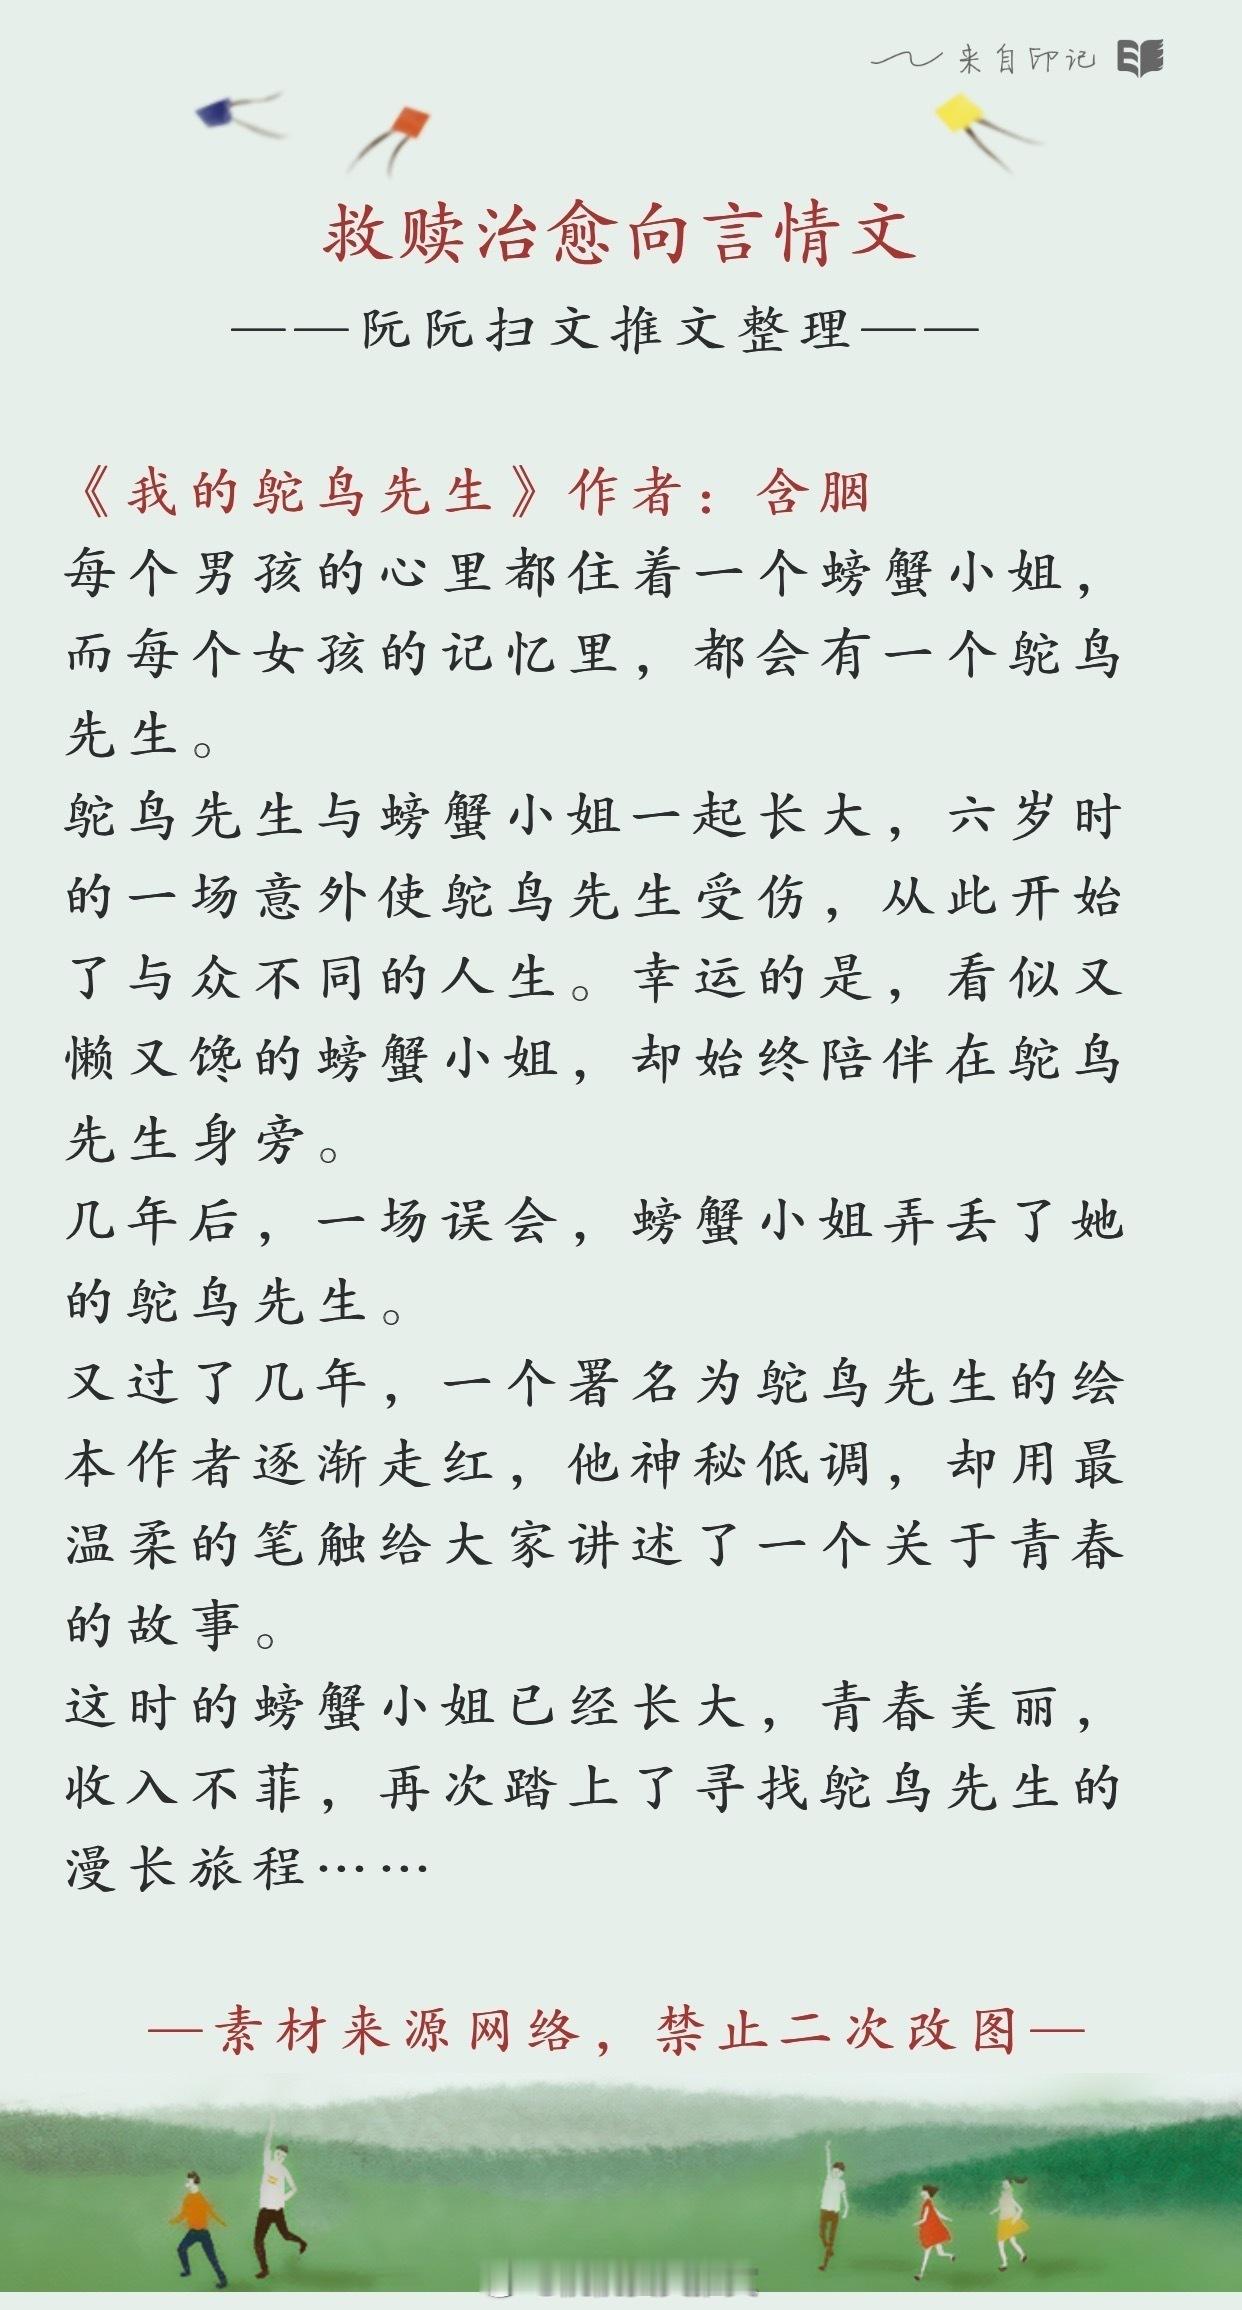 来自印记
救赎治愈向言情文
——阮阮扫文推文整理——
《我的鸵鸟先生》作者：含胭
每个男孩的心里都住着一个螃蟹小姐，
而每个女孩的记忆里，都会有一个鸵鸟
先生。
鸵鸟先生与螃蟹小姐一起长大，六岁时
的一场意外使鸵鸟先生受伤，从此开始
了与众不同的人生。幸运的是，看似又
懒又馋的螃蟹小姐，却始终陪伴在鸵鸟
先生身旁。
几年后，一场误会，螃蟹小姐弄丢了她
的鸵鸟先生。
又过了几年，一个署名为鸵鸟先生的绘
本作者逐渐走红，他神秘低调，却用最
温柔的笔触给大家讲述了一个关于青春
的故事。
这时的螃蟹小姐已经长大，青春美丽，
收入不菲，再次踏上了寻找鸵鸟先生的
漫长旅程……
—素材来源网络，禁止二次改图—